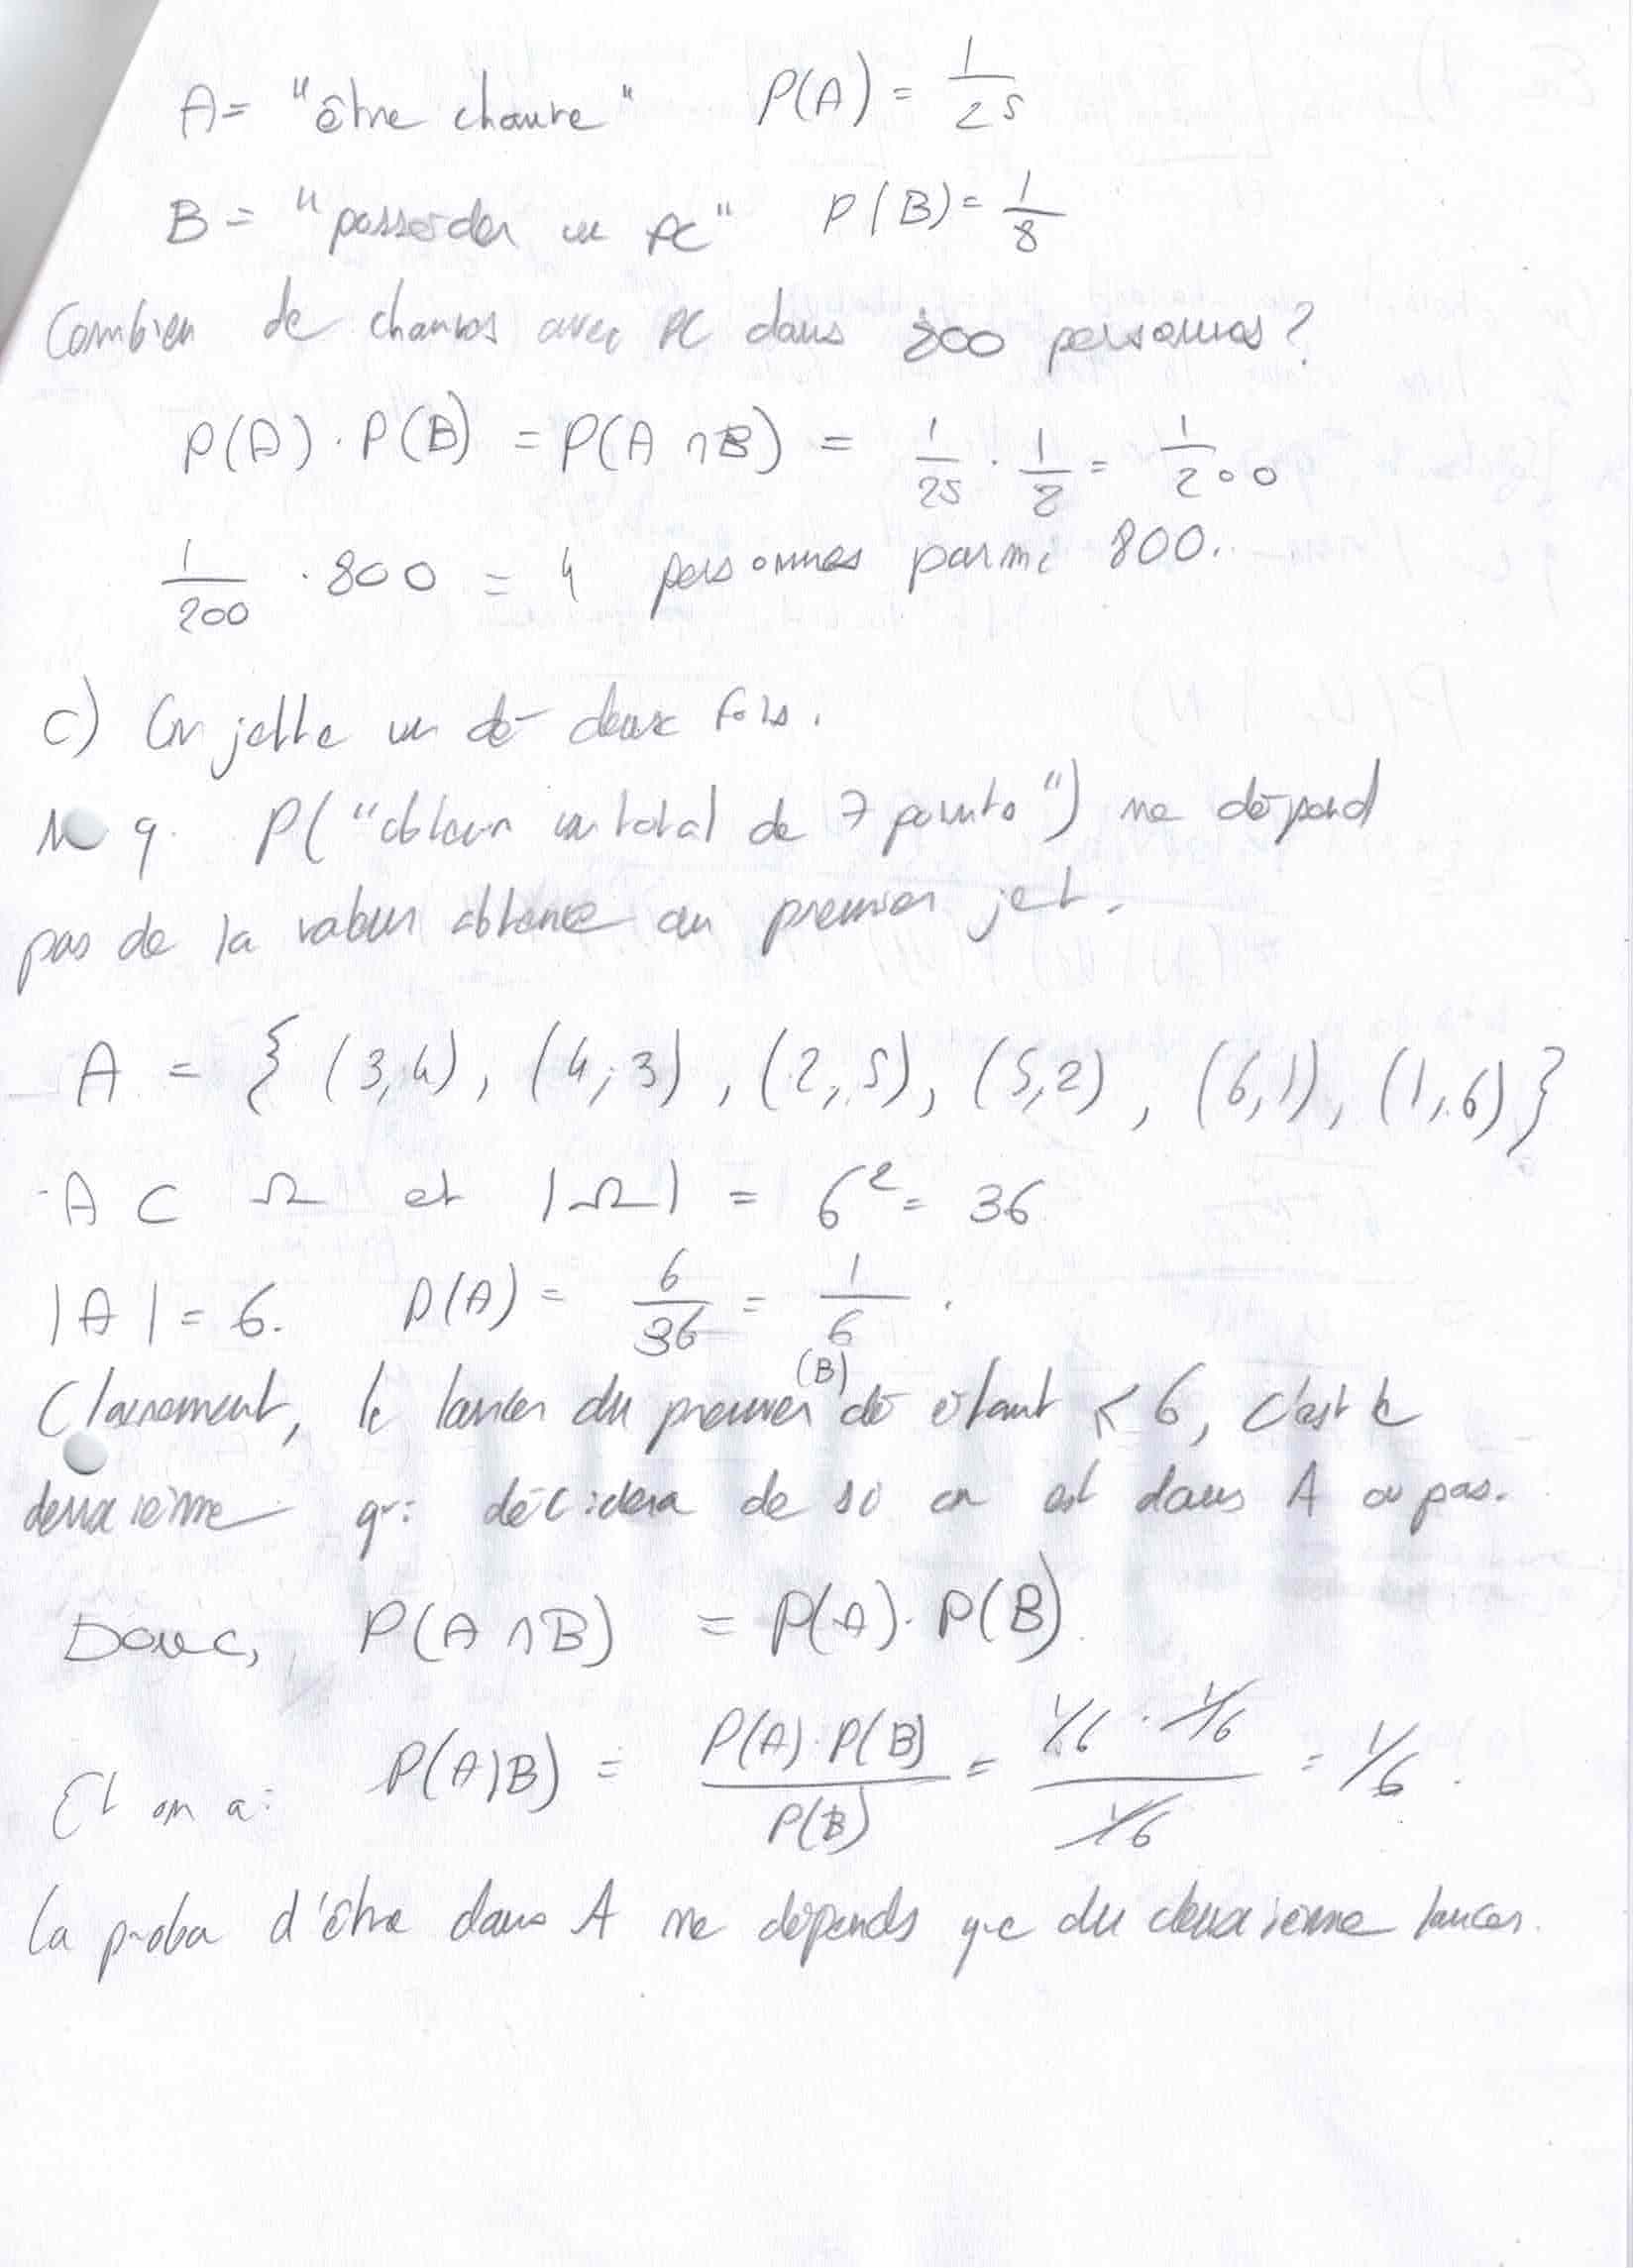 A = "être chauve" P(A) = 1/25
B = "posséder un PC" P(B) = 1/8
Combien de chauves avec PC dans 800 personnes ?
P(A) · P(B) = P(A ∩ B) = 1/25 · 1/8 = 1/200
1/200 · 800 = 4 personnes parmi 800.
c) On jette un dé deux fois.
M q. P("obtenir un total de 7 points") ne dépend
pas de la valeur obtenue au premier jet.
A = { (3,4), (4,3), (2,5), (5,2), (6,1), (1,6) }
A ⊂ Ω et |Ω| = 6² = 36
|A| = 6. P(A) = 6/36 = 1/6 .
(B)
Clairement, le lancer du premier dé étant ≤ 6, c'est le
deuxième qui décidera de si on est dans A ou pas.
Donc, P(A ∩ B) = P(A) · P(B)
Et on a : P(A|B) = P(A) · P(B) / P(B) = 1/6 · 1/6 / 1/6 = 1/6 .
La proba d'être dans A ne dépends que du deuxième lancer.